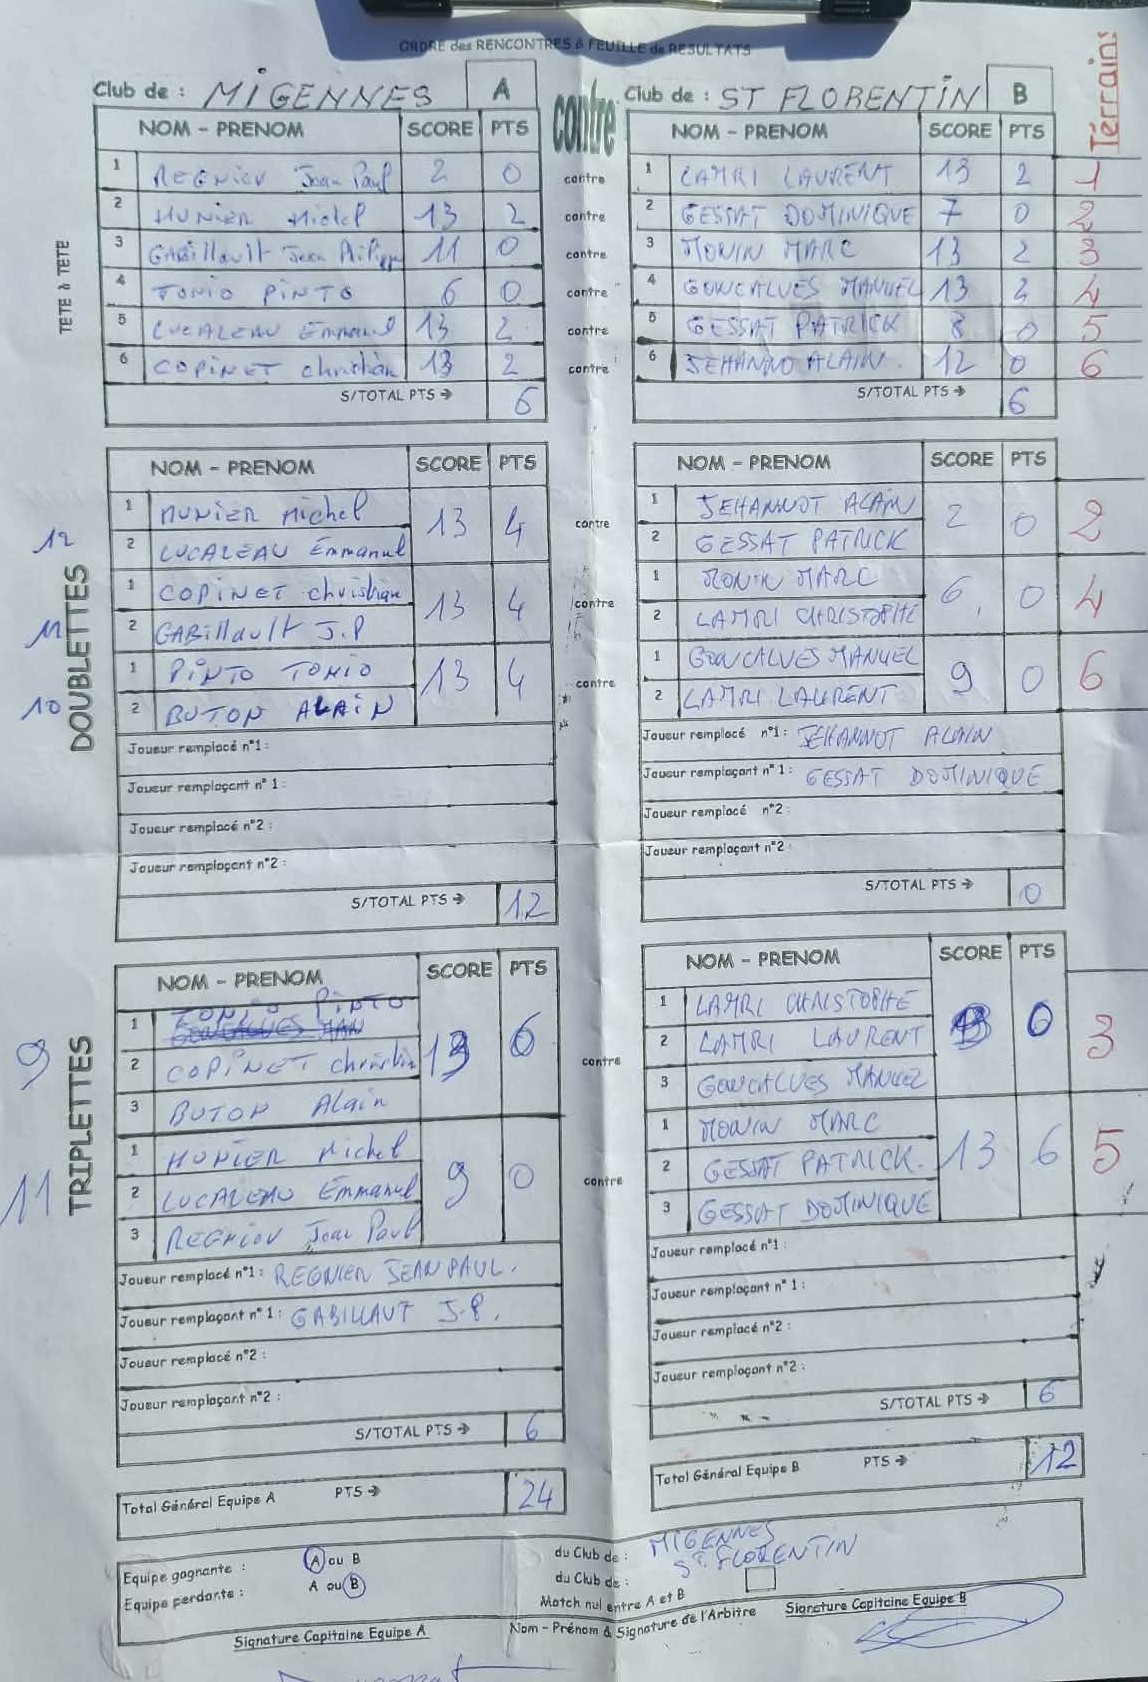 ORDRE des RENCONTRES & FEUILLE de RESULTATS
Club de : MIGENNES A contre Club de : ST FLORENTIN B Terrain:
NOM - PRENOM SCORE PTS NOM - PRENOM SCORE PTS
TETE à TETE
1 REGNIER Jean Paul 2 0 contre 1 LAMRI LAURENT 13 2 1
2 MUNIER Michel 13 2 contre 2 GESSAT DOMINIQUE 7 0 2
3 GABillault Jean Philippe 11 0 contre 3 MONIN MARC 13 2 3
4 TONIO PINTO 6 0 contre 4 GONCALVES MANUEL 13 2 4
5 LUCALEAU Emmanuel 13 2 contre 5 GESSAT PATRICK 8 0 5
6 COPINET christian 13 2 contre 6 JEHANNO ALAIN. 12 0 6
S/TOTAL PTS → 6 S/TOTAL PTS → 6
NOM - PRENOM SCORE PTS NOM - PRENOM SCORE PTS
DOUBLETTES
12
1 MUNIER Michel 13 4 contre 1 JEHANNOT ALAIN 2 0 2
2 LUCALEAU Emmanuel 2 GESSAT PATRICK
11
1 COPINET christian 13 4 contre 1 MONIN MARC 6 0 4
2 GABillault J.P 2 LAMRI CHRISTOPHE
10
1 PINTO TONIO 13 4 contre 1 GONCALVES MANUEL 9 0 6
2 BUTON ALAIN 2 LAMRI LAURENT
Joueur remplacé n°1: Joueur remplacé n°1: JEHANNOT ALAIN
Joueur remplaçant n° 1: Joueur remplaçant n° 1: GESSAT DOMINIQUE
Joueur remplacé n°2 : Joueur remplacé n°2:
Joueur remplaçant n°2 : Joueur remplaçant n°2 :
S/TOTAL PTS → 12 S/TOTAL PTS → 0
NOM - PRENOM SCORE PTS NOM - PRENOM SCORE PTS
TRIPLETTES
9
1 TONIO PINTO 13 6 contre 1 LAMRI CHRISTOPHE 0 3
2 COPINET christian 2 LAMRI LAURENT
3 BUTON Alain 3 GONCALVES MANUEL
11
1 MUNIER Michel 9 0 contre 1 MONIN MARC 13 6 5
2 LUCALEAU Emmanuel 2 GESSAT PATRICK.
3 REGNIER Jean Paul 3 GESSAT DOMINIQUE
Joueur remplacé n°1: REGNIER JEAN PAUL. Joueur remplacé n°1:
Joueur remplaçant n° 1: GABILLAUT J-P. Joueur remplaçant n° 1:
Joueur remplacé n°2 : Joueur remplacé n°2:
Joueur remplaçant n°2 : Joueur remplaçant n°2:
S/TOTAL PTS → 6 S/TOTAL PTS → 6
Total Général Equipe A PTS → 24 Total Général Equipe B PTS → 12
Equipe gagnante : A ou B du Club de : MIGENNES
Equipe perdante : A ou B du Club de : ST. FLORENTIN
Match nul entre A et B
Signature Capitaine Equipe A Nom - Prénom & Signature de l'Arbitre Signature Capitaine Equipe B